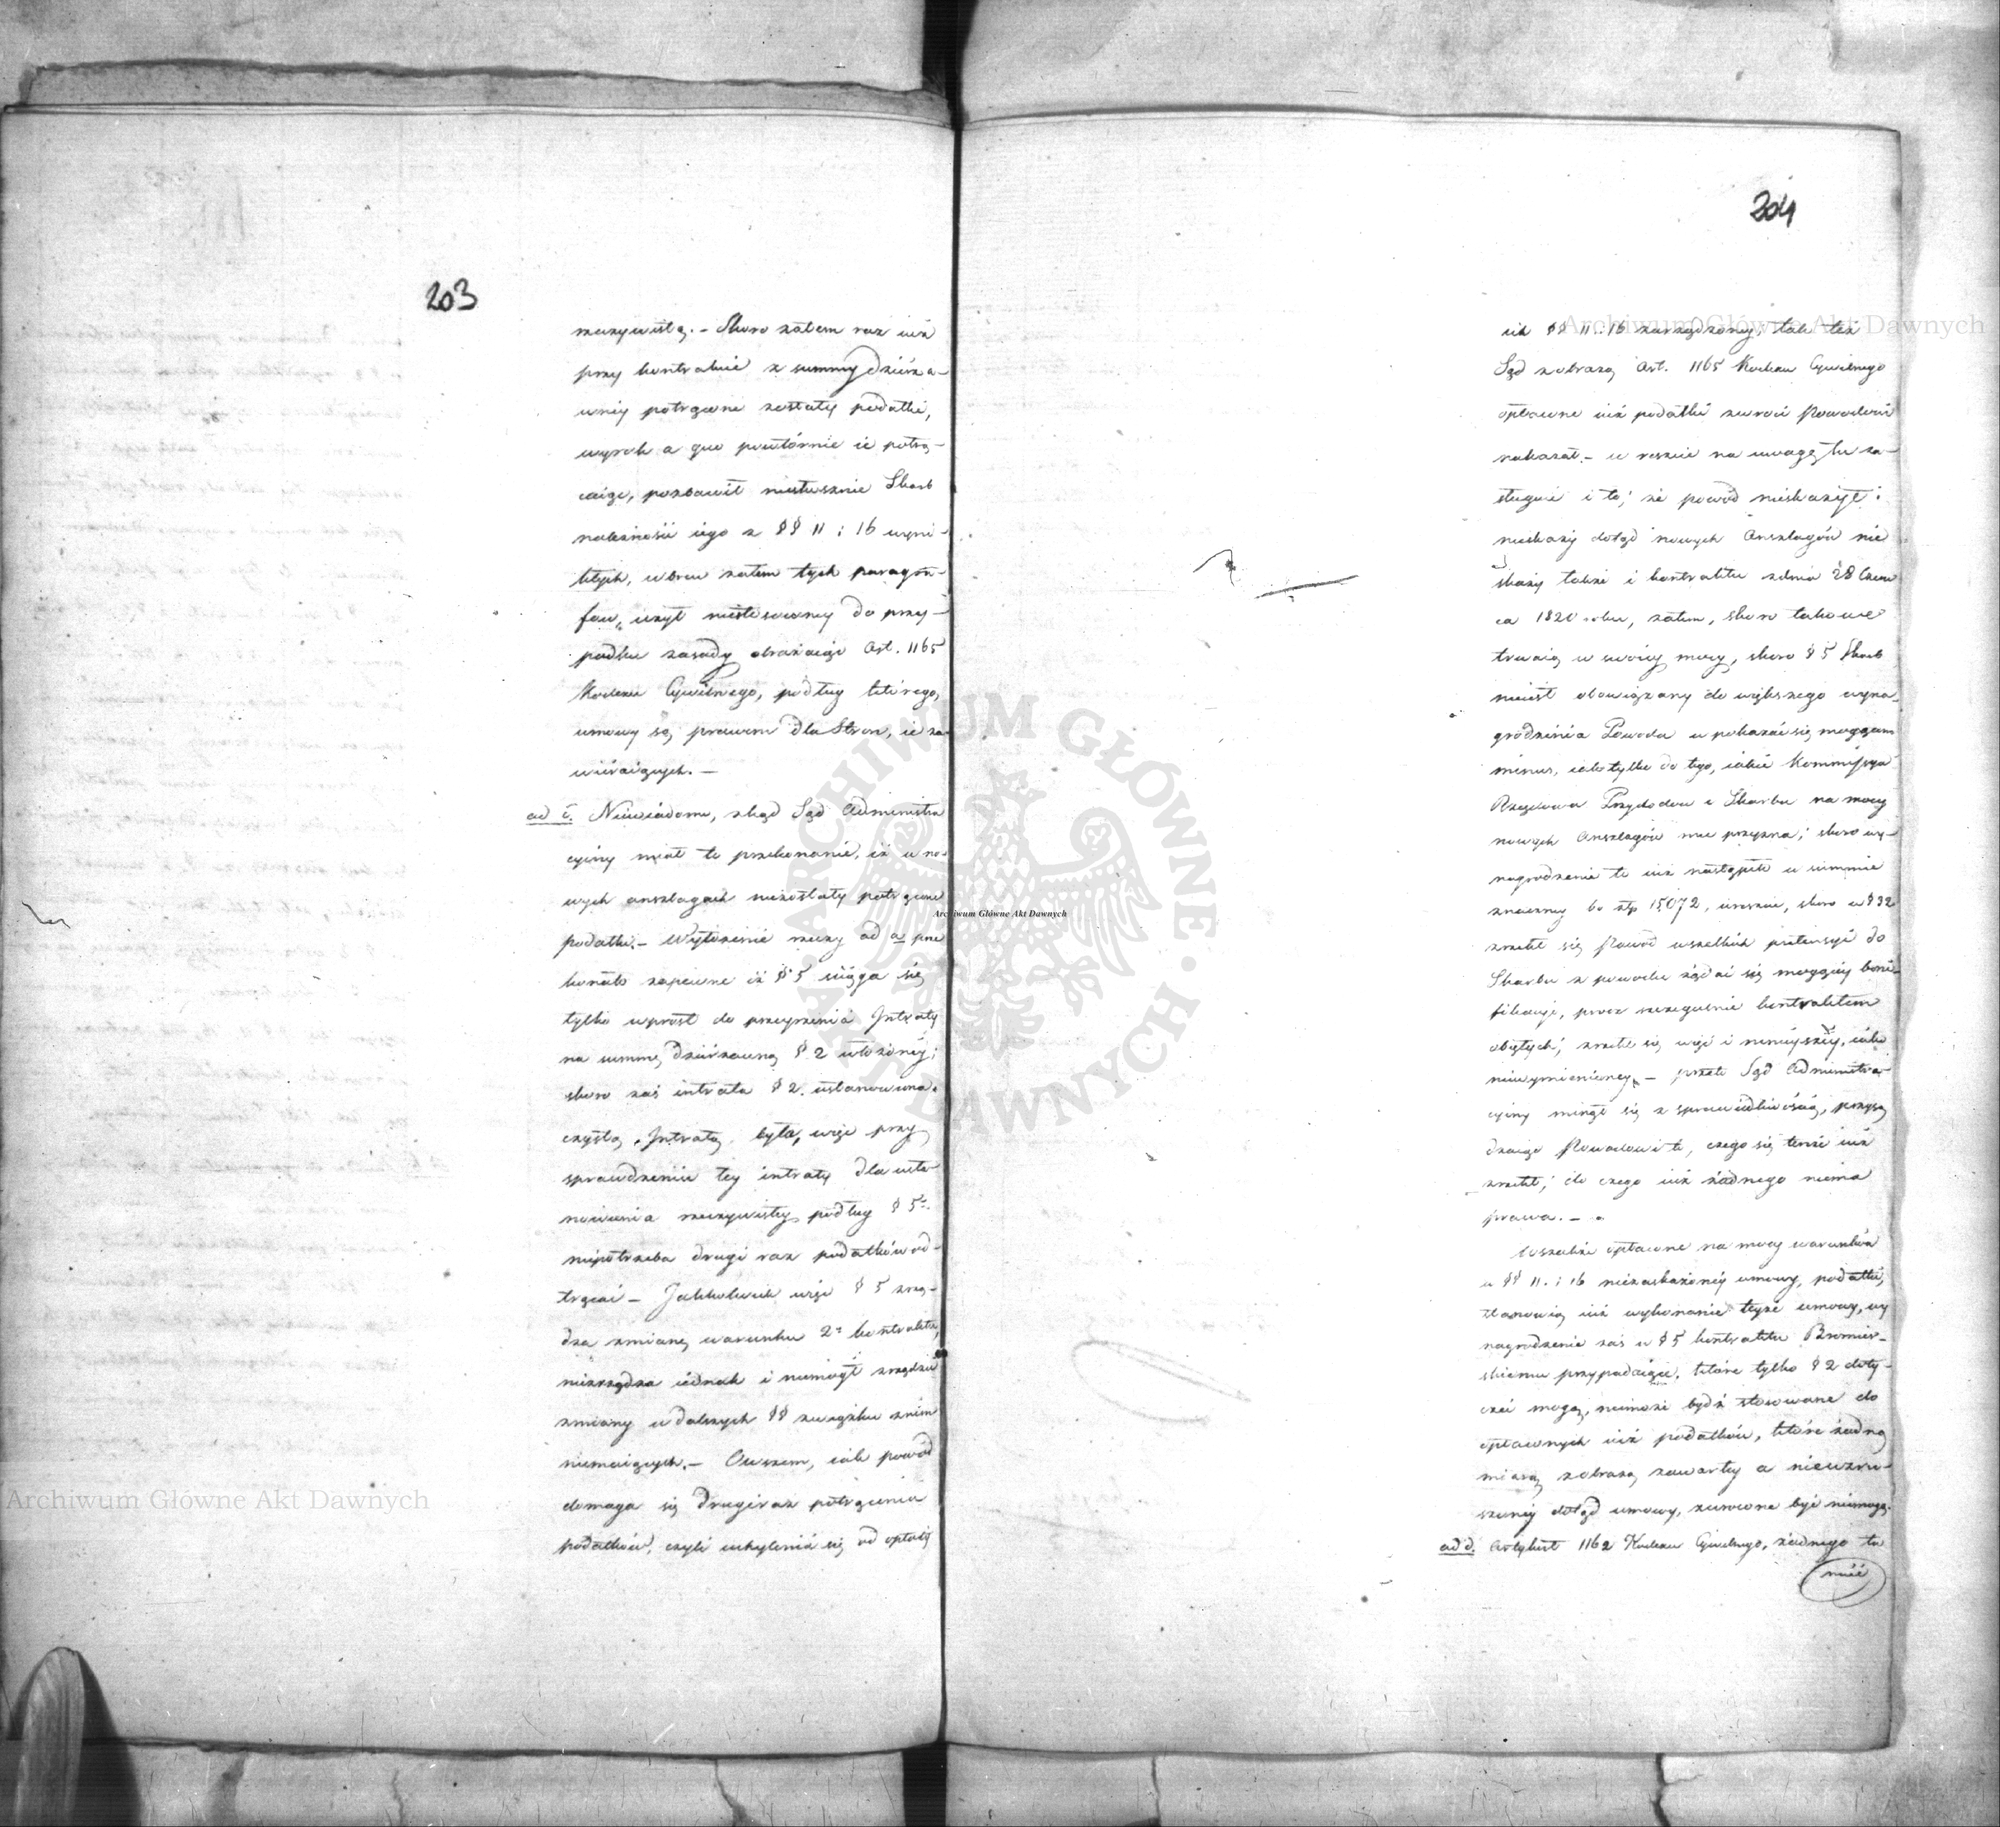 203
rzeczywistą. – Skoro zatem raz iuż
przy kontrakcie z summy dzierża-
wnéy potrącone zostały podatki,
wyrok a quo powtórnie ie potrą-
caiąc, pozbawił niesłusznie Skarb
należności iego z §§ 11 i 16 wyni-
kłych, wbrew zatem tych paragra-
fów, użył niestosowney do przy-
padku zasady obrażaiąc Art. 1165
Kodexu Cywilnego, podług którego,
umowy są prawem dla Stron, ie za-
wieraiących. –
ad c. Niewiadomo, zkąd Sąd Administra
cyiny miał to przekonanie, iż w no-
wych anszlagach niezostały potrącone
podatki. – Wyłożenie rzeczy ad a prze
konało zapewne iż § 5 ściąga się
tylko wprost do przeyrzenia Intraty
na summę dzierżawną § 2 ułożonéy;
skoro zaś intrata § 2. ustanowiona
czystą Intratą była, więc przy
sprawdzeniu tey intraty dla usta-
nowienia rzeczywistey podług § 5º
niepotrzeba drugi raz podatków od-
trącać – Jakkolwiek więc § 5 zrzą-
dza zmianę warunku 2º kontraktu,
niezrządza iednak i niemógł zrządzić
zmiany w dalszych §§ związku z nim
niemaiących. – Owszem, iak powód
domaga się drugi raz potrącenia
podatków, czyli uchylenia się od opłaty
204
ich §§ 11 i 16 zarządzoney, tak też
Sąd z obrazą Art. 1165 Kodexu Cywilnego
opłacone iuż podatki zwrócić Powodowi
nakazał. – w reszcie na uwagę tu za-
sługuie i to, że powód nieskarżył i
nieskarży dotąd nowych Anszlagów nie
skarży także i kontraktu z dnia 28 Czerw
ca 1820 roku, zatem, skoro takowe
trwaią w swoiéy mocy, skoro § 5 Skarb
nieiest obowiązany do większego wyna-
grodzenia Powoda w pokazać się mogącem
minus, iak tylko do tego, iakie Kommissya
Rządowa Przychodów i Skarbu na mocy
nowych Anszlagów mu przyzna; skoro wy-
nagrodzenie to iuż nastąpiło w summie
znaczney bo złp 15,072, wreszcie, skoro w § 32
zrzekł się Powód wszelkich pretensyi do
Skarbu z powodu żądać się mogącéy boni-
fikacyi, prócz szczególnie kontraktem
obiętych, zrzekł się więc i ninieyszéy, iako
niewymienioney, – przeto Sąd Administra-
cyiny minął się z sprawiedliwością, przysą
dzaiąc Powodowi to, czego się tenże iuż
zrzekł, i do czego iuż żadnego niema
prawa. –
Wszakże opłacone na mocy warunków
w §§ 11. i 16 niezaskarżonéy umowy, podatki,
stanowią iuż wykonanie teyże umowy, wy
nagrodzenie zaś w § 5 kontraktu Bromier-
skiemu przypadaiące, które tylko § 2 doty-
czeć mogą, niemoże bydź stosowane do
opłaconych iuż podatków, które żadną
miarą z obrazą zawartéy a niewzru-
szonéy dotąd umowy, zwrócone być niemogą.
ad d. Artykuł 1162 Kodexu Cywilnego, żadnego tu
mieć
Archiwum Główne Akt Dawnych
Archiwum Główne Akt Dawnych
Archiwum Główne Akt Dawnych
ARCHIWUM GŁÓWNE AKT DAWNYCH